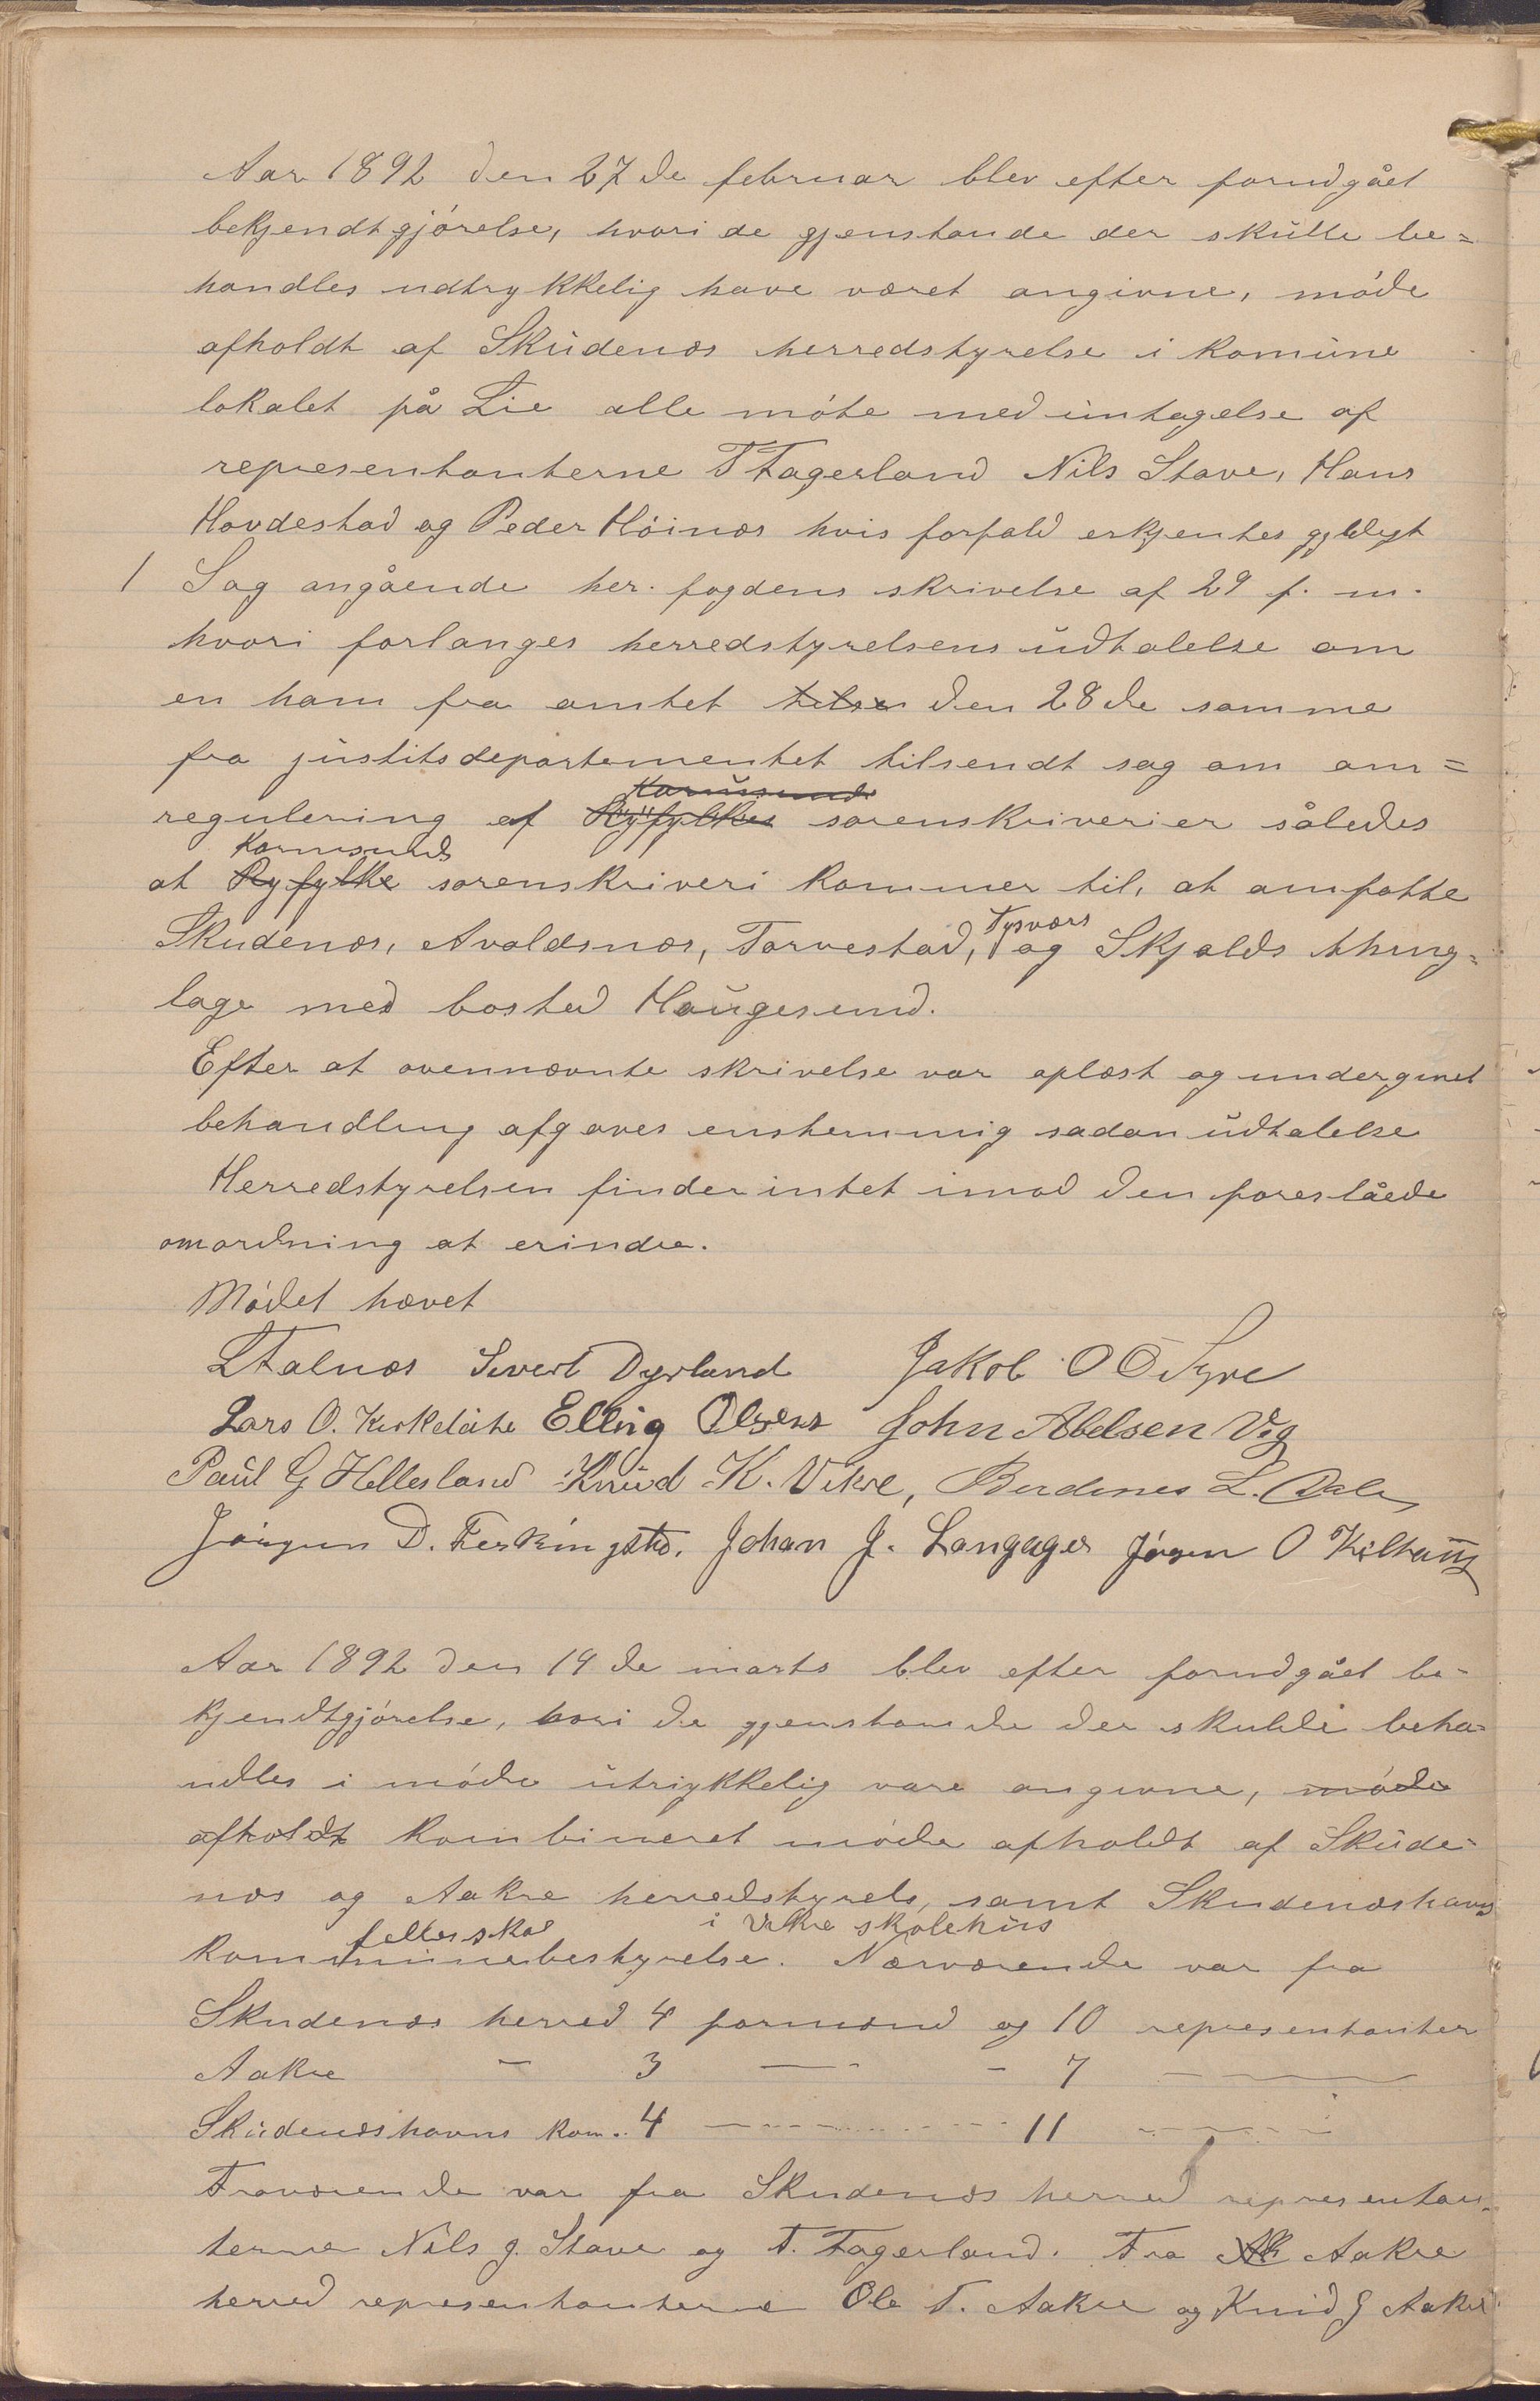 Aar 1892 den 27de februar blev efter forudgået
bekjendtgjórelse, hvori de gjenstande der skulle be=
handles udtrykkelig have været angivne, móde
afholdt af Skudenæs herredstyrelse i komune
lokalet på Lie alle móte med untagelse af
representanterne T Fagerland Nils Stave, Hans
Hovdestad og Peder Hóinæs hvis forfald erkjentes gyldigt
1 Sag angående her. fogdens skrivelse af 29 f. m.
hvori forlanges herredstyrelsens udtalelse om
en ham fra amtet tilse den 28de samme
fra justitsdepartementet tilsendt sag om om=
Karmsunds
regulering af Ryfylkes sorenskriverier således
Karmsunds
at Ryfylke sorenskriveri kommer til, at omfatte
Tysværs
Skudenæs, Avaldsnæs, Torvestad, og Skjolds thing=
lage med bosted Haugesund.
Efter at ovennævnte skrivelse var oplæst og undergivet
behandling afgaves enstemmig sadan udtalelse
Herredstyrelsen finder intet imod den foreslåede
omordning at erindre.
Módet hævet
L Falnæs Sivert Dyrland Jakob O O Syre
Lars O. Kirkeleite Elling Olsen John Abelsen Vig
Paul G Hellesland Knud K. Vikre, Berdines L. Dale
Jórgen D. Ferkingstd. Johan J. Langager Jórgen O Kilhaug
Aar 1892 den 19de marts blev efter forudgået be-
kjendtgjórelse, hvori de gjenstande der skulde beha-
ndles i móde utrykkelig vare angivne, móde
afholdt kombineret móde afholdt af Skude-
næs og Aakre herredstyrels, samt Skudenæshavns
fellesskab i Vikre skolehus
kommunebestyrelse. Nærværende var fra
Skudenæs herred 4 formænd og 10 representanter
Aakre - 3 — - 7 —
Skudenæshavns kom. 4 — 11 —
Fraværende var fra Skudenæs herred representan-
terne Nils J. Stave og T. Fagerland. Fra Ak Aakre
herred representanterne Ole T. Aakre og Knud J Aakre